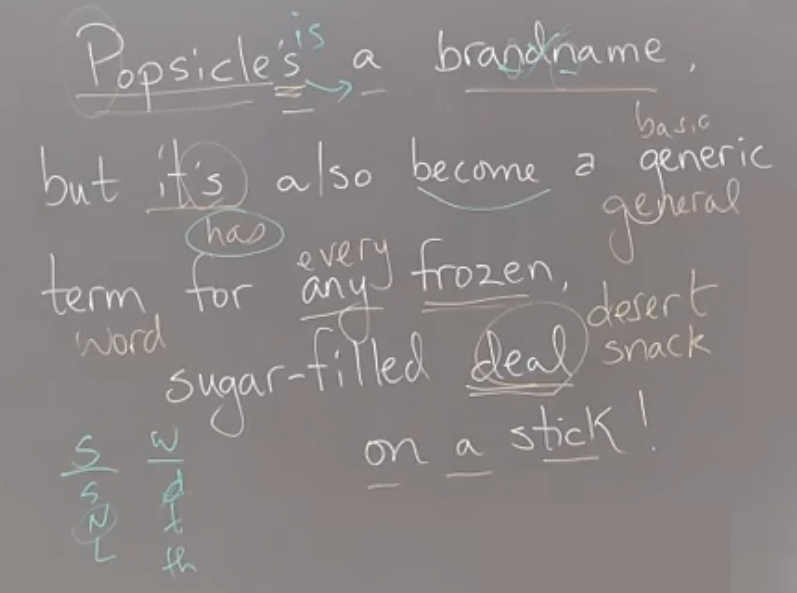 is
Popsicle's a brandname,
basic
but it's also become a generic
has general
every
term for any frozen,
word desert
sugar-filled deal snack
on a stick!
S W
s d
N t
L th